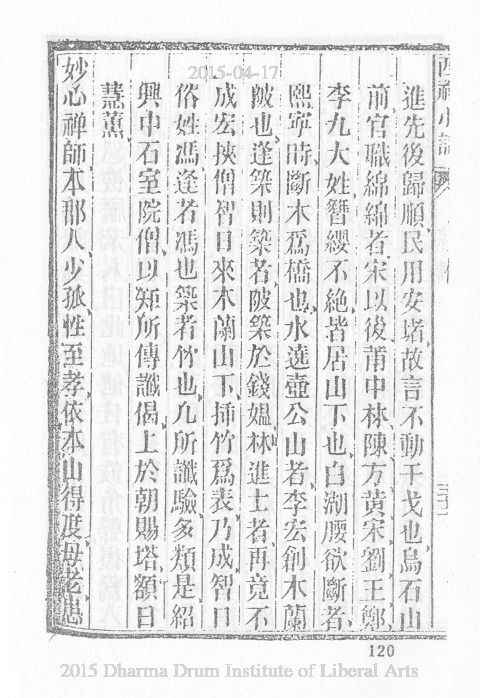 進先後歸順、民用安堵、故言不動干戈也、烏石山
前官職綿綿者、宋以後莆中林陳方黃宋劉王鄭
李九大姓、簪纓不絕、皆居山下也、白湖腰欲斷者、
熙寧時、斷木爲橋也、水遶壺公山者、李宏創木蘭
陂也、逢築則築者、陂築於錢媼、林進士者、再竟不
成、宏挾僧智日來木蘭山下、揷竹爲表、乃成、智日
俗姓馮、逢者馮也、築者竹也、凡所讖驗多類是、紹
興中石室院僧、以矩所傳讖偈、上於朝、賜塔、額日
慧薰、
妙心禪師、本郡人、少孤、性至孝、依本山得度、母老患
120
2015-04-17
2015 Dharma Drum Institute of Liberal Arts